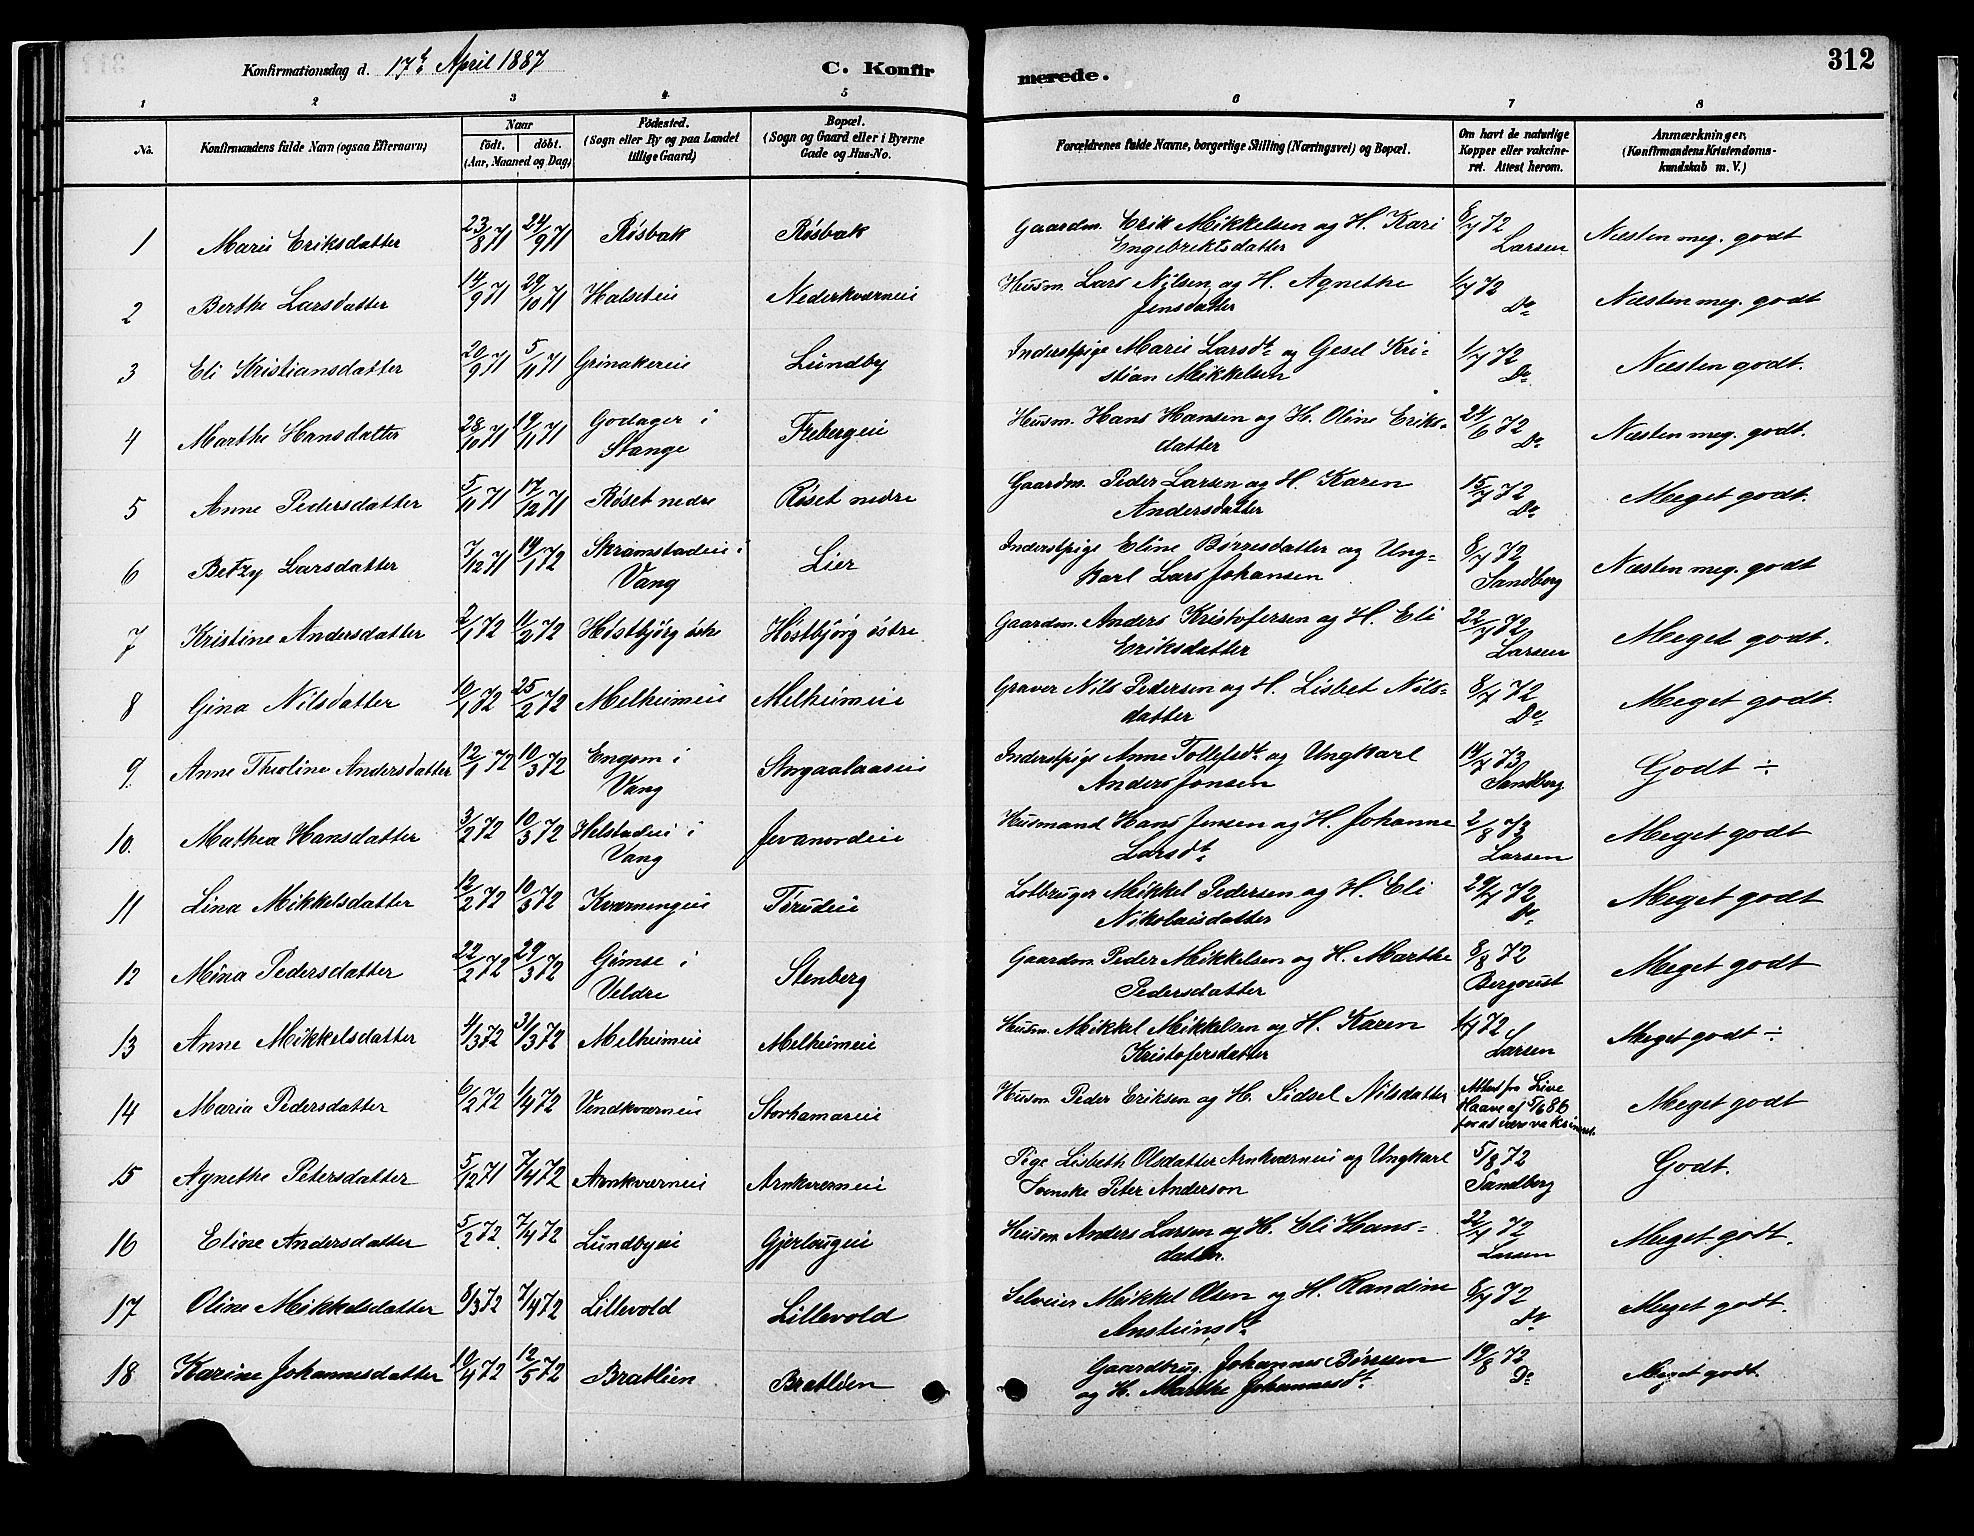 Konfirmationsdag d. 17de April 1887
C. Konfir
merede.
312
1 2 3 4 5 6 7 8
No.
Konfirmandens fulde Navn (ogsaa Efternavn)
Naar
födt. döbt.
(Aar, Maaned og Dag)
Födested.
(Sogn eller By og paa Landet
tillige Gaard)
Bopæl.
(Sogn og Gaard eller i Byerne
Gade og Hus-No.
Forældrenes fulde Navne, borgerlige Stilling (Næringsvei) og Bopæl.
Om havt de naturlige
Kopper eller vakcine-
ret. Attest herom.
Anmærkninger,
(Konfirmandens Kristendoms-
kundskab m. V.)
1 Marie Eriksdatter 23/8 71 24/9 71 Røsbak Røsbak Gaardm. Erik Mikkelsen og H. Kari 8/7 72 Næsten meg. godt
Engebriktsdatter Larsen
2 Berthe Larsdatter 14/9 71 29/10 71 Halseteie Nederkværneie Husm. Lars Nilsen og H. Agnethe 1/7 72 Næsten meg. godt
Jensdatter Do
3 Eli Kristiansdatter 20/9 71 5/11 71 Grinakereie Lundby Inderstpige Marie Larsdt. og Gesel Kri- 1/7 72 Næsten godt.
stian Mikkelsen Do
4 Marthe Hansdatter 28/10 71 19/11 71 Godager i Frebergeie Husm. Hans Hansen og H. Oline Eriks- 24/6 72 Næsten meg. godt.
Stange datter Do
5 Anne Pedersdatter 5/11 71 17/12 71 Røset nedre Røset nedre Gaardm. Peder Larsen og H. Karen 15/7 72 Meget godt.
Andersdatter Do
6 Betzy Larsdatter 7/12 71 14/1 72 Skramstadeie i Lier Inderstpige Eline Børresdatter og Ung- 8/7 72 Næsten meg. godt
Vang karl Lars Johansen Sandberg
7 Kristine Andersdatter 2/1 72 11/2 72 Høstbjörg östre Høstbjörg östre Gaardm. Anders Kristofersen og H. Eli 22/7 72 Meget godt.
Eriksdatter Larsen
8 Gina Nilsdatter 10/1 72 25/2 72 Melheimeie Melheimeie Graver Nils Pedersen og H. Lisbet Nils- 8/7 72 Meget godt.
datter Do
9. Anne Theoline Andersdatter 12/1 72 10/3 72 Engom i Inderstpige Anne Tollefsdt. og Ungkarl 14/7 73 Godt ÷
Vang Anders Jonsen Sandberg
10. Mathea Hansdatter 3/2 72 10/3 72 Helstadeie i Jevanordeie Husmand Hans Jensen og H. Johanne 2/8 73 Meget godt
Vang Larsdt. Larsen
11 Lina Mikkelsdatter 12/2 72 10/3 72 Kværningeie Tørudeie Lotbruger Mikkel Pedersen og H. Eli 29/7 72 Meget godt
Nikolaisdatter Do
12 Mina Pedersdatter 22/2 72 29/3 72 Gimse i Stenberg Gaardm. Peder Mikkelsen og H. Marthe 8/8 72 Meget godt
Veldre Pedersdatter Bergqvist
13 Anne Mikkelsdatter 4/3 72 31/3 72 Melheimeie Melheimeie Husm. Mikkel Mikkelsen og H. Karen 1/7 72 Meget godt ÷
Kristofersdatter Larsen
14 Maria Pedersdatter 6/2 72 1/4 72 Vendkværneie Storhamareie Husm. Peder Eriksen og H. Sidsel Nilsdatter Attest fra Meget godt
Haave af 5/6 86
for at være vaksineret.
15 Agnethe Petersdatter 5/12 71 7/4 72 Arnkværneie Arnkværneie Pige Lisbeth Olsdatter Arnkværneie og Ungkarl 5/8 72 Godt.
Svenske Peter Anderson Sandberg
16 Eline Andersdatter 5/2 72. 7/4 72 Lundbyeie Gjerlaugeie Husm. Anders Larsen og H. Eli Hans- 22/7 72 Meget godt.
datter. Larsen
17 Oline Mikkelsdatter 8/3 72 7/4 72 Lillevold Lillevold Selveier Mikkel Olsen og H. Randine 8/7 72 Meget godt.
Ansteinsdt. Do
18 Karine Johannesdatter 10/4 72 12/5 72 Bratlien Bratlien Gaardbrug. Johannes Børresen 19/8 72 Meget godt.
og H. Marthe Johannesdt. Do